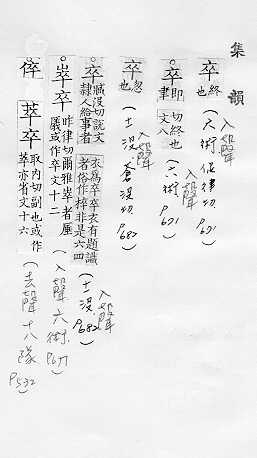 集韻
卒 終也 (六術 入聲 P671)
卒 即聿切終也文八 (六術 入聲 P671)
卒 忽也 (十一沒 蒼沒切 入聲 P682)
卒 臧沒切說文隸人給事者衣為卒卒衣有題識者俗作捽非是文四 (十一沒 入聲 P682)
崒 崪 昨律切爾雅崒者厜㕒或作卒文十二 (入聲 六術 P671)
倅 萃 卒 取內切副也或作萃亦省文十六 (去聲 十八隊 P532)